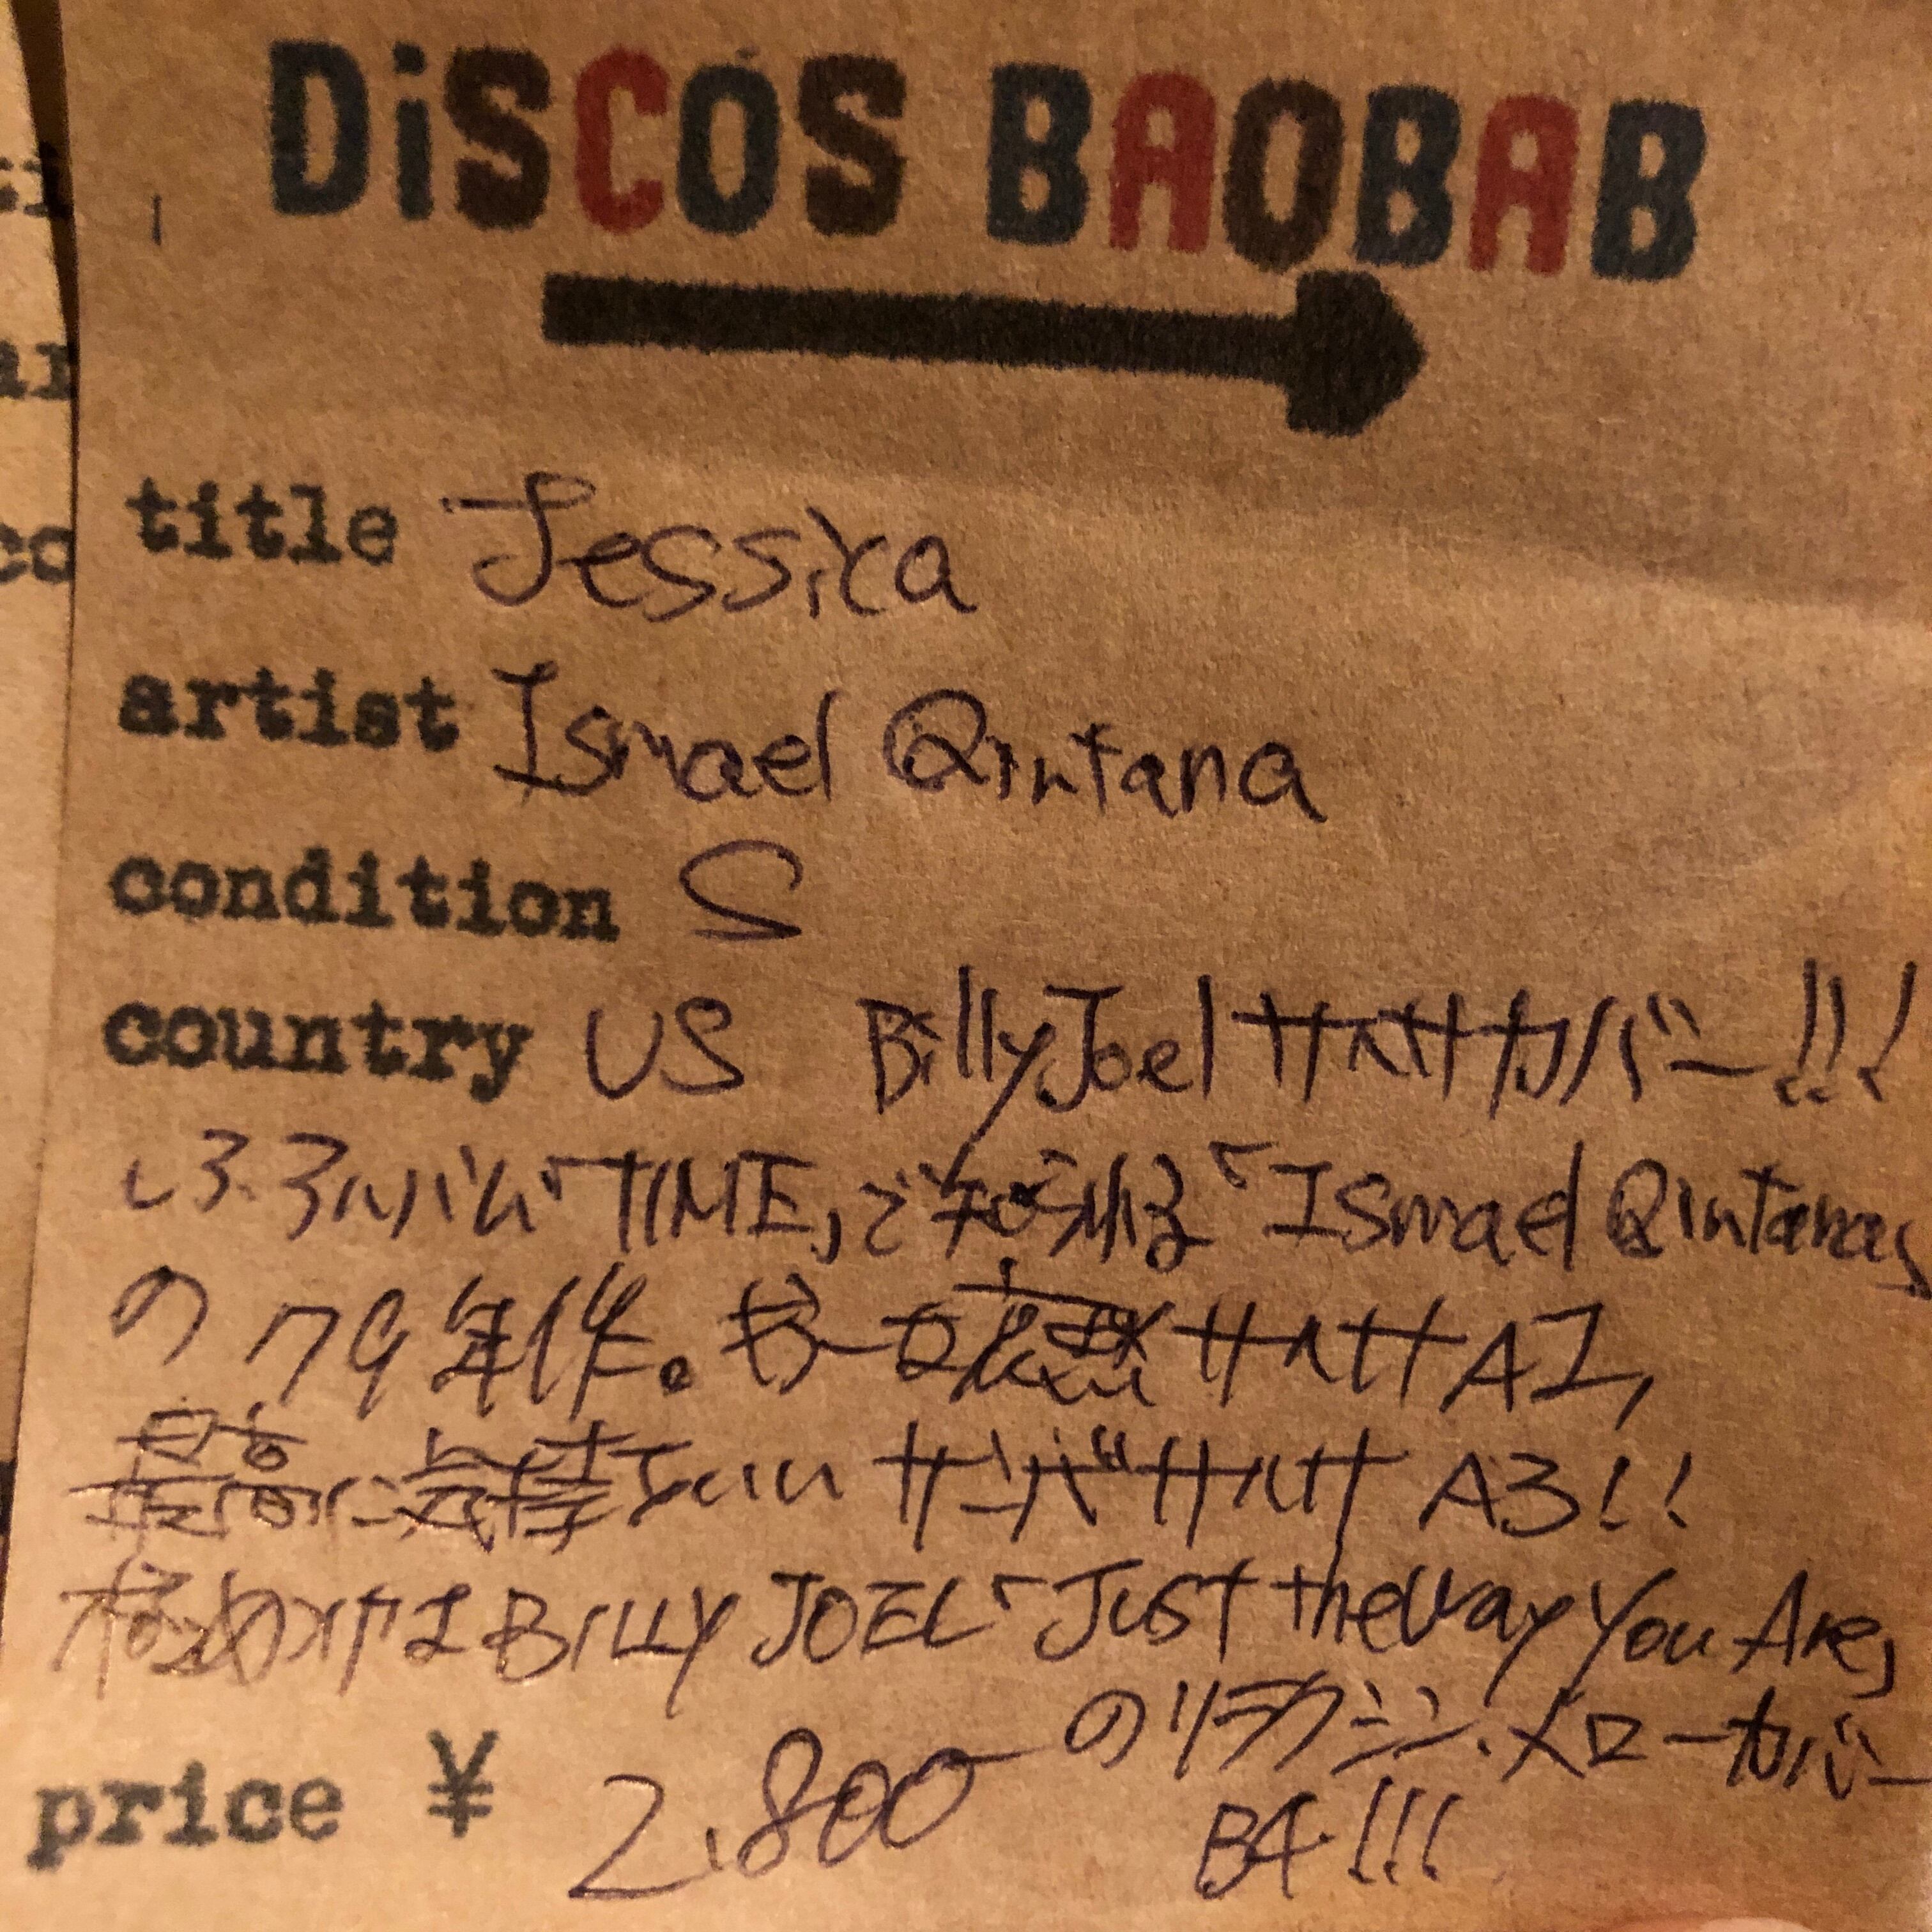 DiSCOS BAOBAB
title Jessica
artist Ismael Qintana
condition S
country US Billy Joel サルサカバー!!!
アルバム「TIME」で知られる「Ismael Qintana」
の79年作。哀愁サルサA1,
最高に気持ちいいサンバサルサ A3!!
極めつけはBILLY JOEL「Just the way You Are」
のリラクシン・メローカバー
B4!!!
price ¥ 2,800